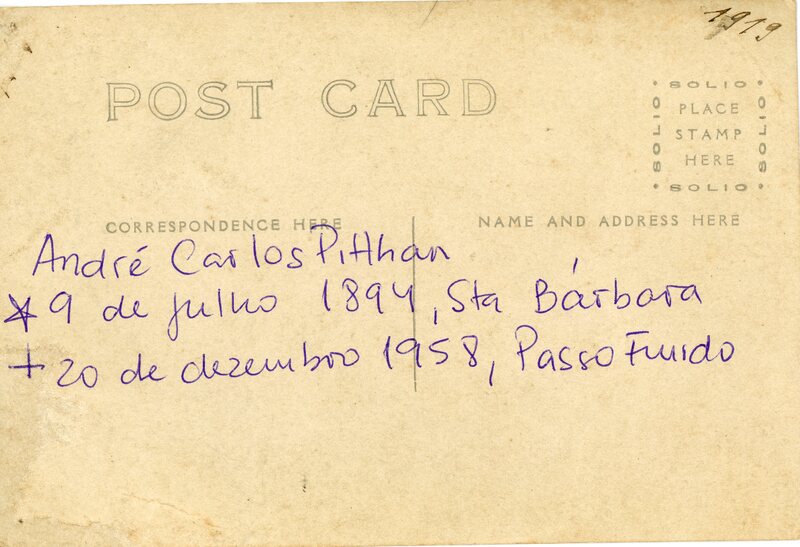 1919
POST CARD
SOLIO
SOLIO PLACE SOLIO
STAMP
HERE
SOLIO
CORRESPONDENCE HERE
NAME AND ADDRESS HERE
André Carlos Pitthan
* 9 de julho 1894, Sta Bárbara
+ 20 de dezembro 1958, Passo Fundo